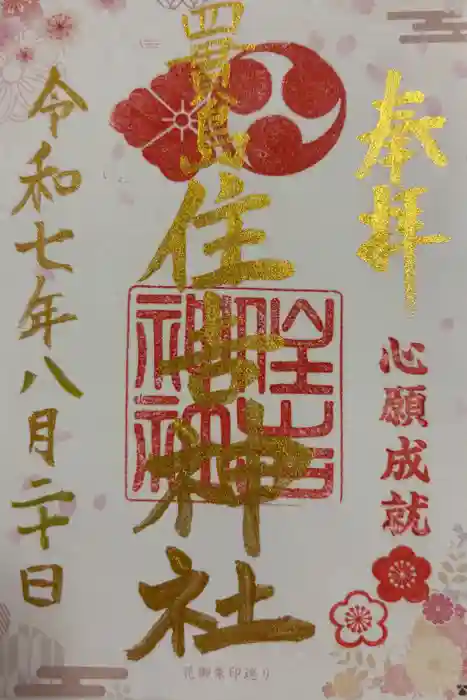 奉拝
心願成就
住吉神社
住吉
神社
令和七年八月二十日
花御朱印巡り